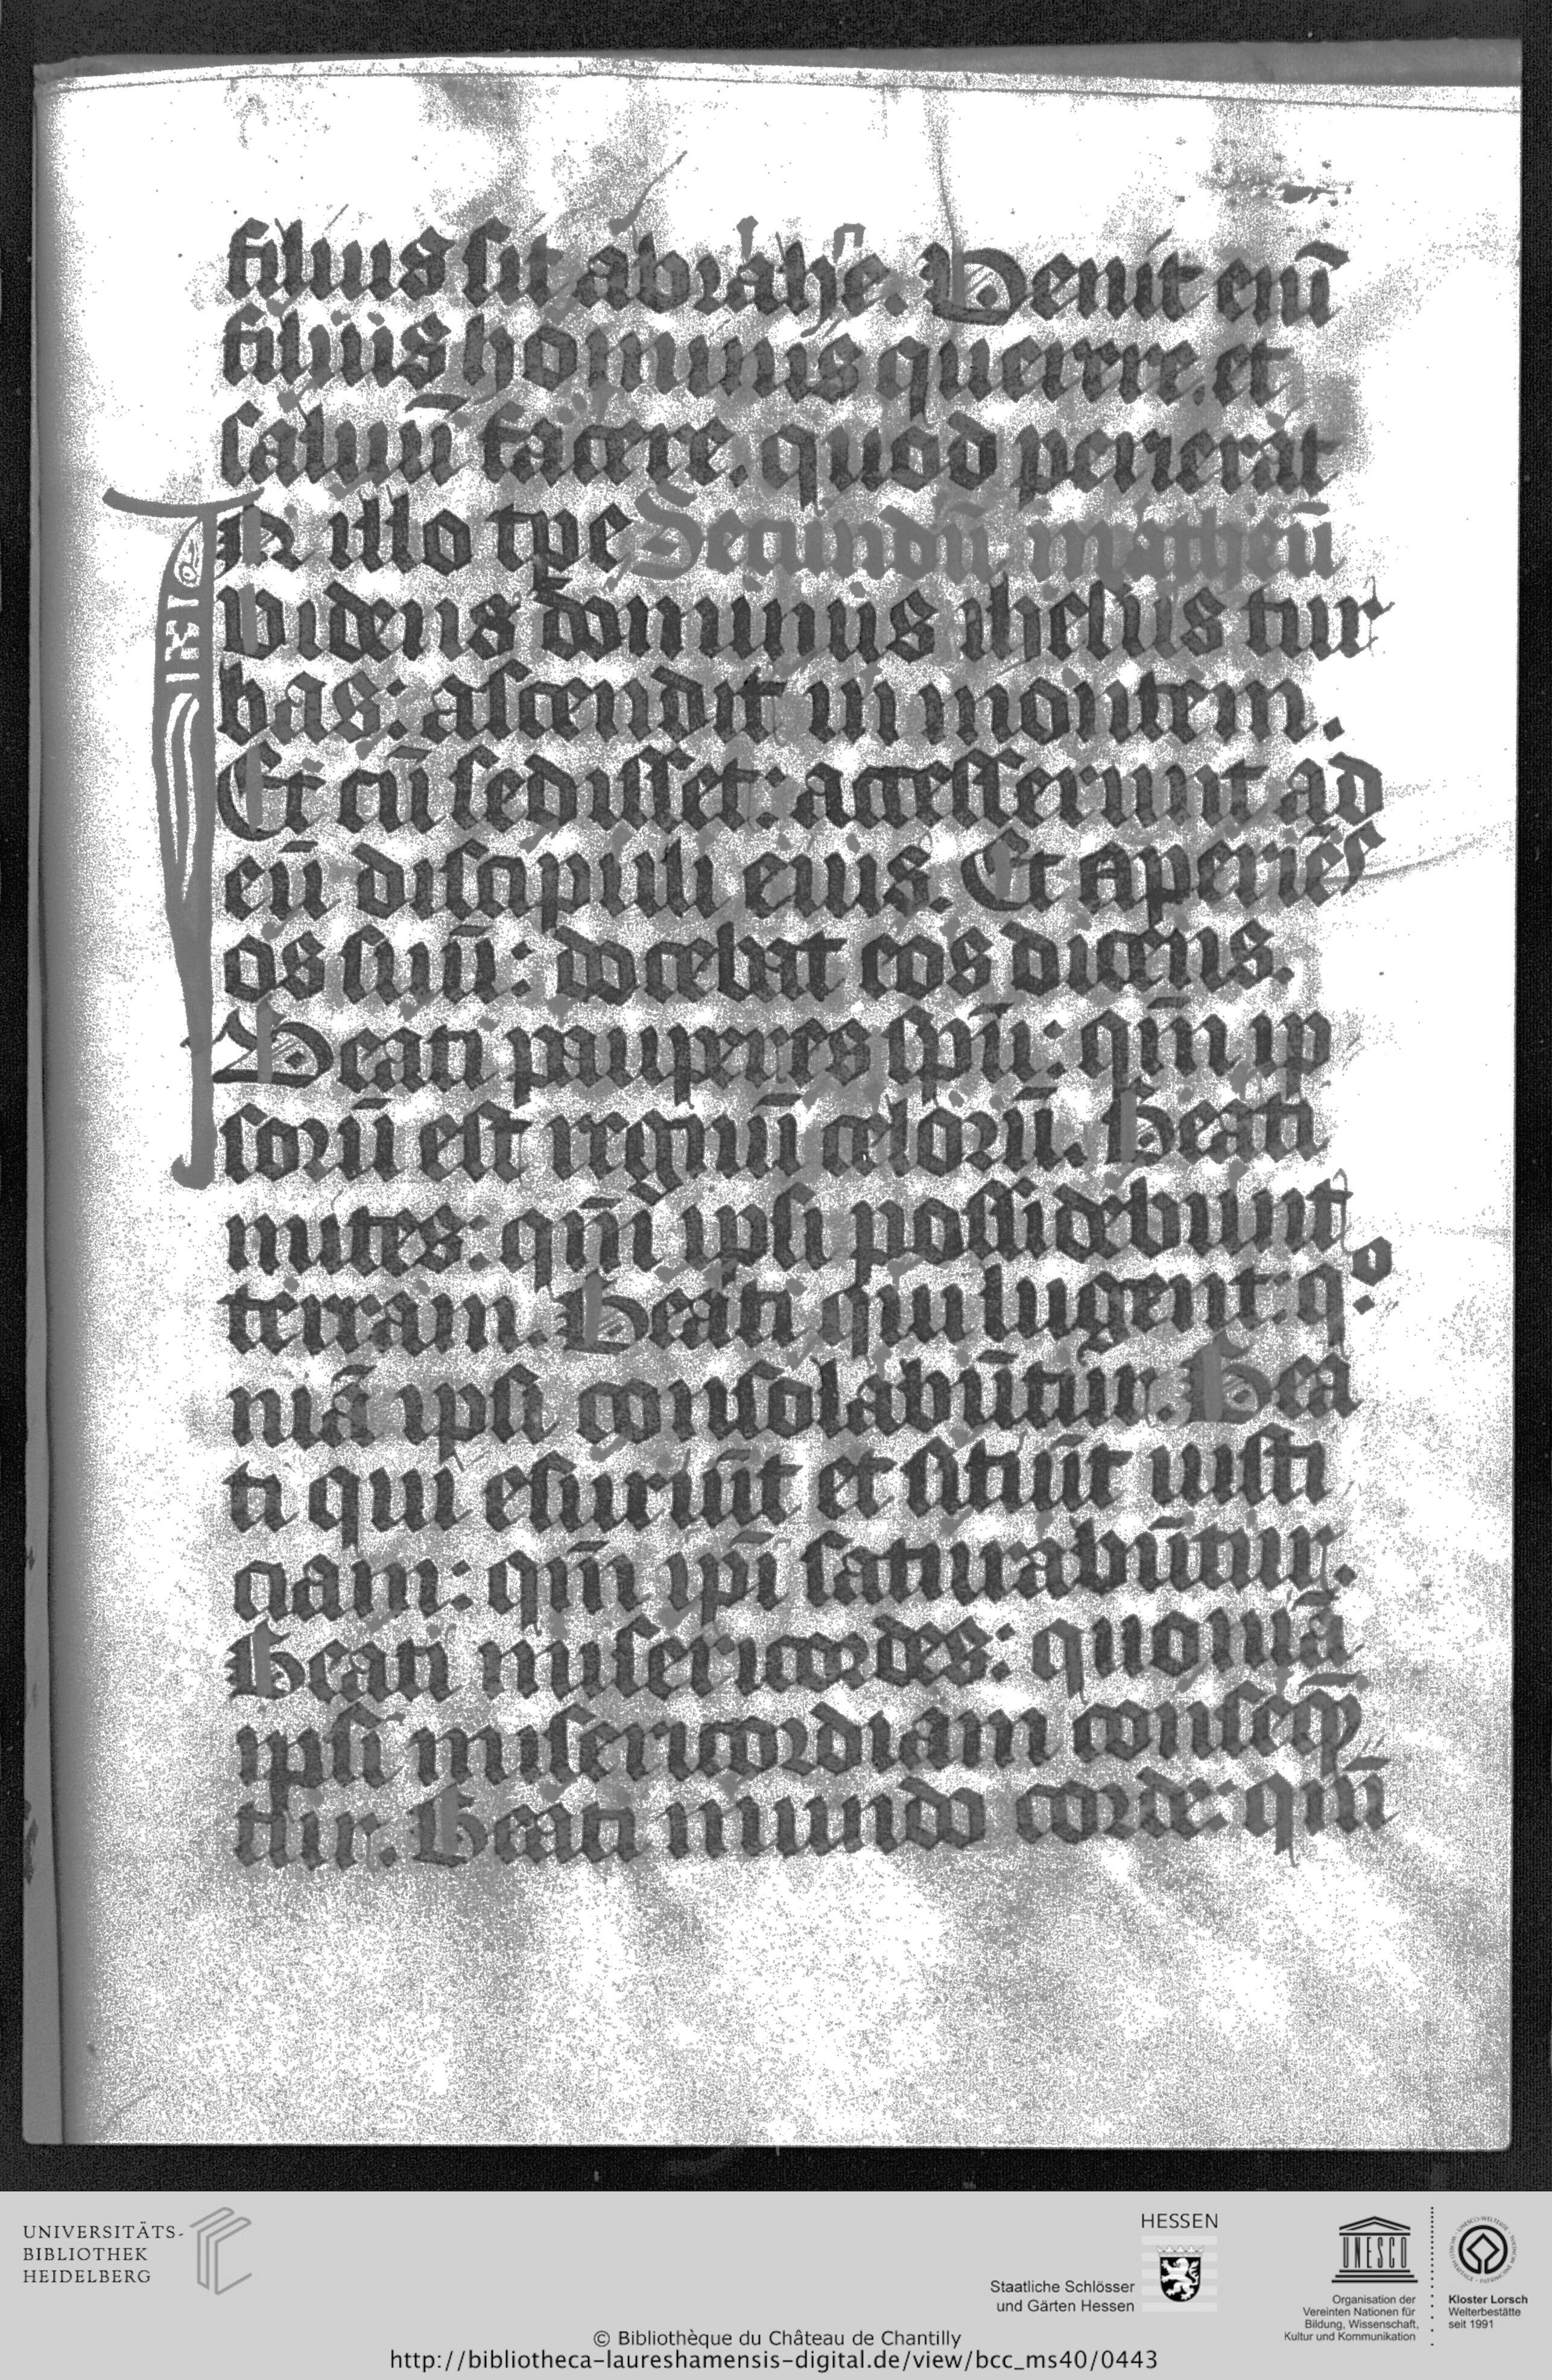 filius sit abrahe. Venit enī
filius hominis querere et
saluū facere. quod perierat
In illo tpe Secundū matheū
Videns dominus ihesus tur
bas: ascendit in montem.
Et cū sedisset: accesserunt ad
eū discipuli eius. Et aperiēs
os suū: docebat eos dicens.
Beati pauperes spū: qm̄ ip
sorū est regnū celorū. Beati
mites: qm̄ ipsi possidebunt
terram. Beati qui lugent: qº
niā ipsi consolabūtur. Bea
ti qui esuriūt et sitiūt iusti
ciam: qm̄ ipi̅ saturabūtur.
Beati misericordes: quoniā
ipsi misericordiam conseq̄
tur. Beati mundo corde: qm̄
UNIVERSITÄTS-
BIBLIOTHEK
HEIDELBERG
HESSEN
Staatliche Schlösser
und Gärten Hessen
UNESCO
Organisation der
Vereinten Nationen für
Bildung, Wissenschaft,
Kultur und Kommunikation
Kloster Lorsch
Welterbestätte
seit 1991
© Bibliothèque du Château de Chantilly
http://bibliotheca-laureshamensis-digital.de/view/bcc_ms40/0443